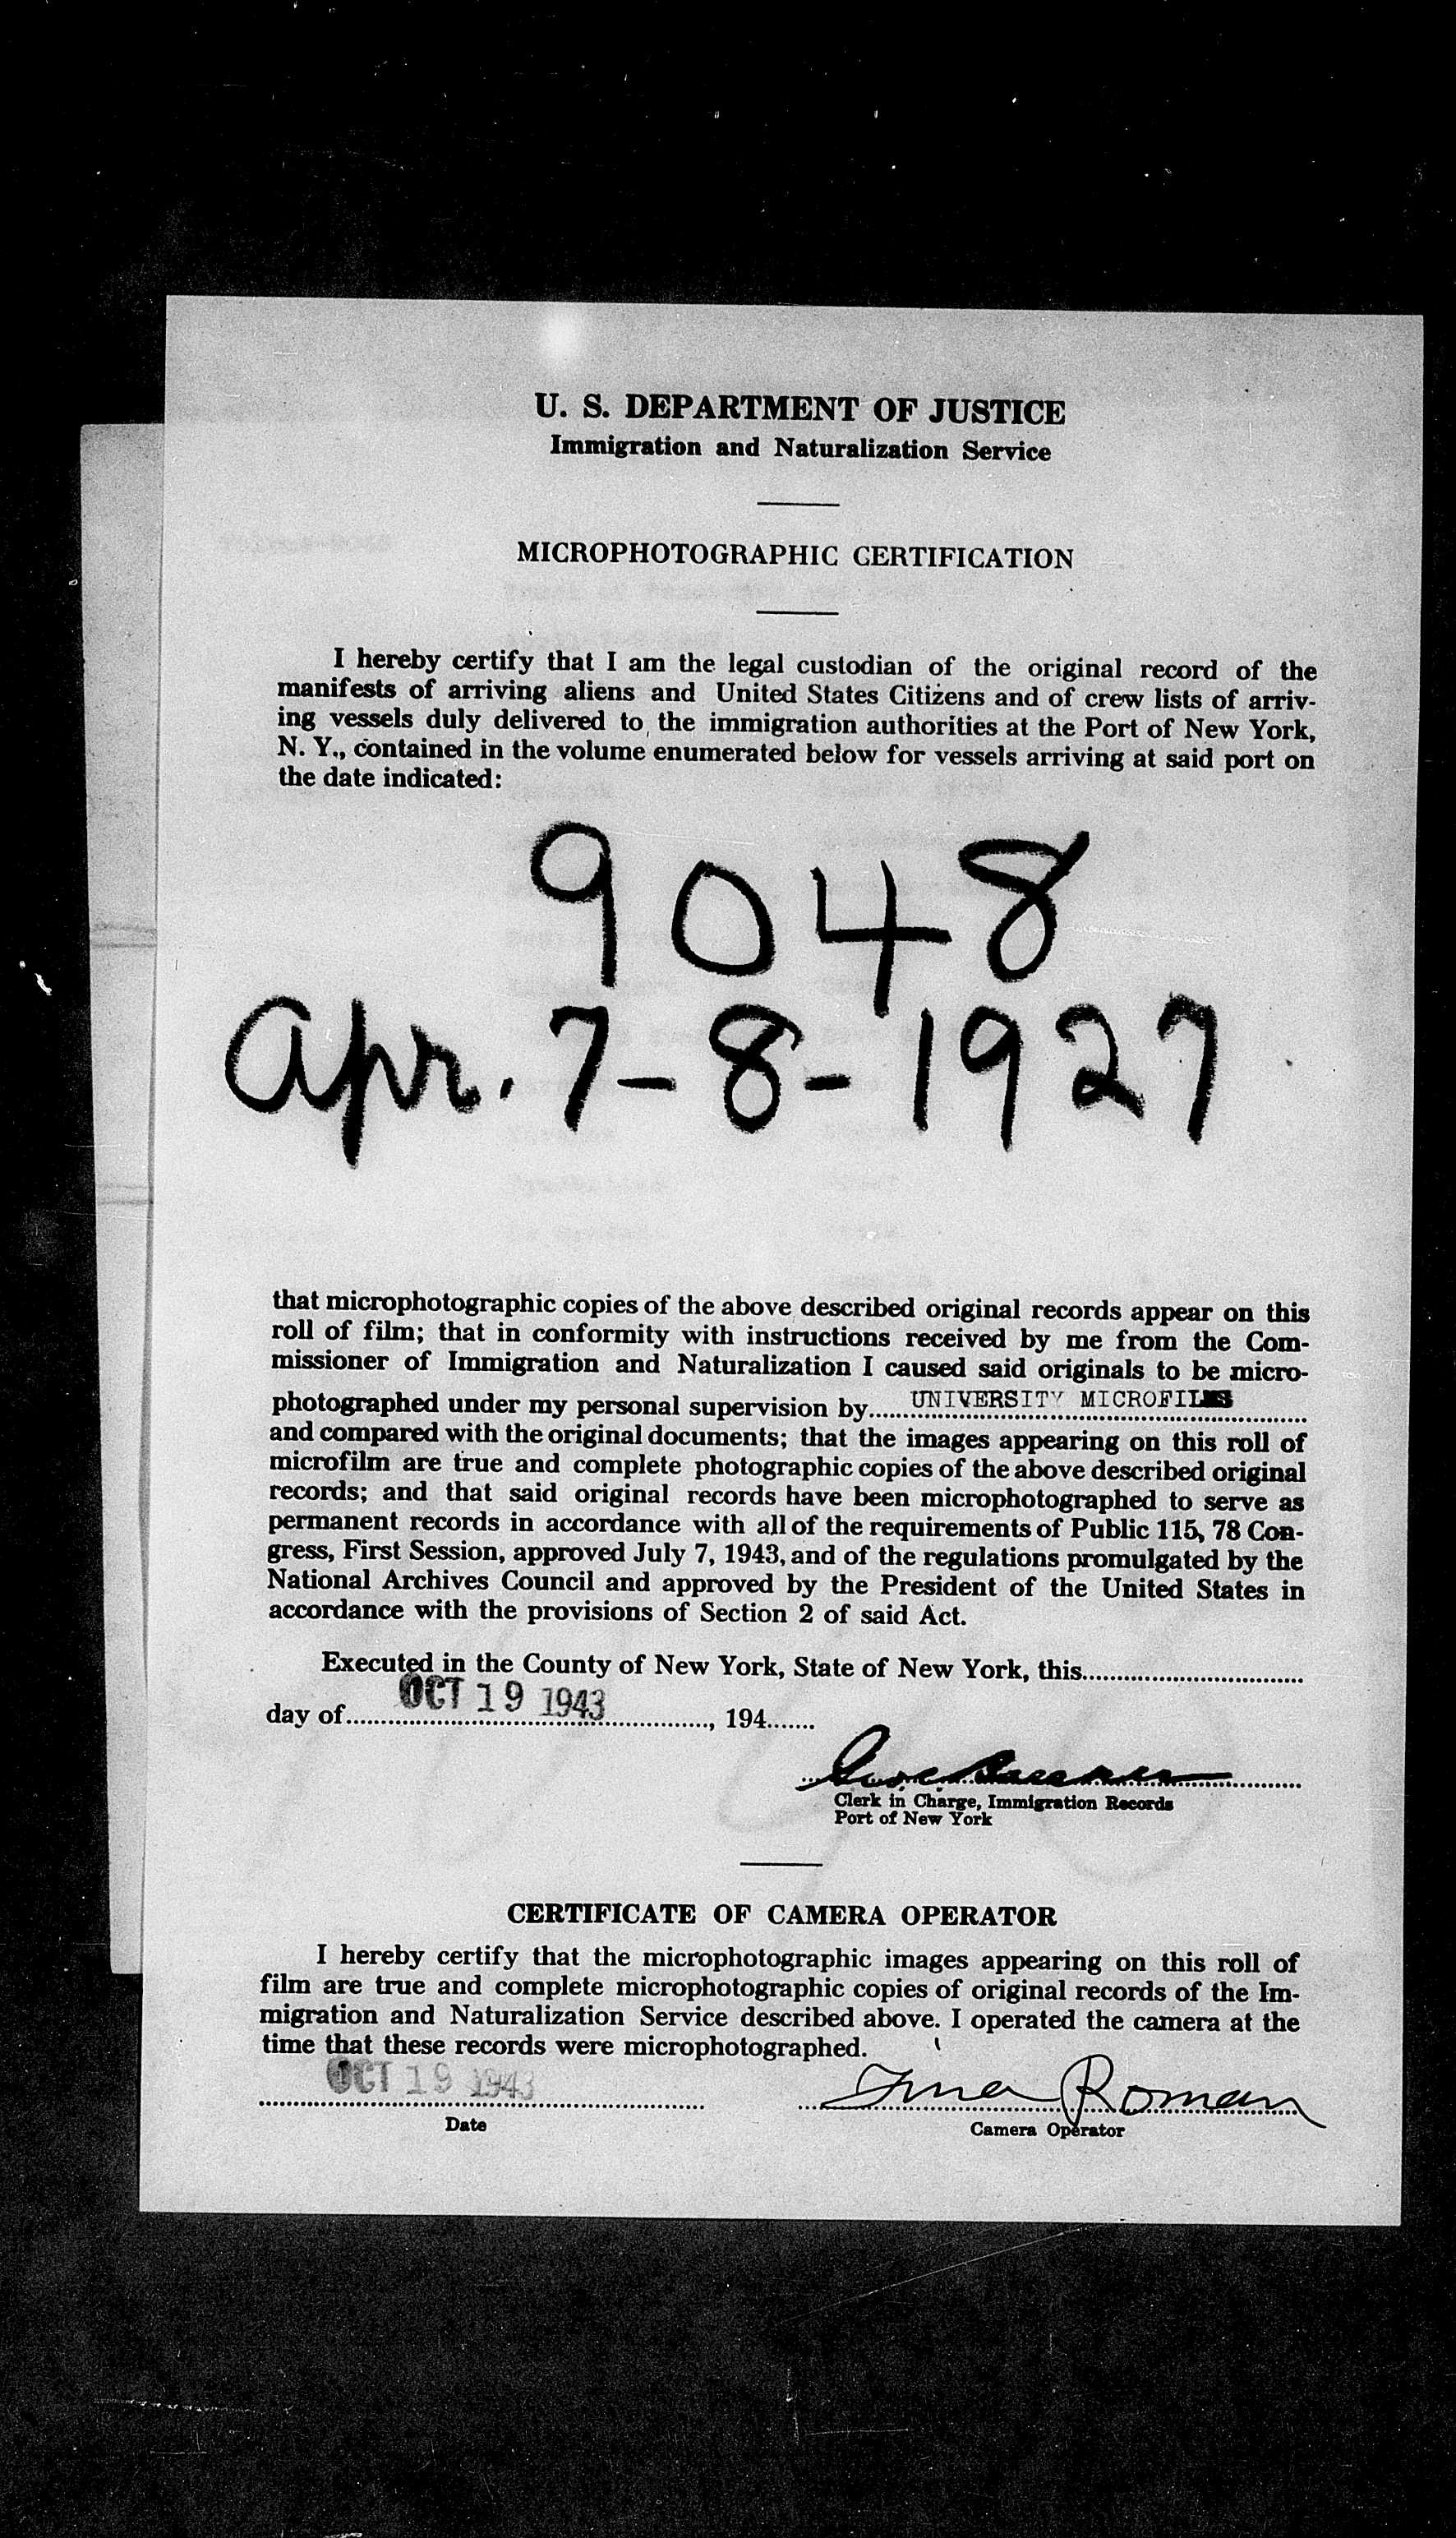 U. S. DEPARTMENT OF JUSTICE
Immigration and Naturalization Service
MICROPHOTOGRAPHIC CERTIFICATION
I hereby certify that I am the legal custodian of the original record of the
manifests of arriving aliens and United States Citizens and of crew lists of arriv-
ing vessels duly delivered to the immigration authorities at the Port of New York,
N. Y., contained in the volume enumerated below for vessels arriving at said port on
the date indicated:
9048
Apr. 7-8-1927
that microphotographic copies of the above described original records appear on this
roll of film; that in conformity with instructions received by me from the Com-
missioner of Immigration and Naturalization I caused said originals to be micro-
photographed under my personal supervision by UNIVERSITY MICROFILMS
and compared with the original documents; that the images appearing on this roll of
microfilm are true and complete photographic copies of the above described original
records; and that said original records have been microphotographed to serve as
permanent records in accordance with all of the requirements of Public 115, 78 Con-
gress, First Session, approved July 7, 1943, and of the regulations promulgated by the
National Archives Council and approved by the President of the United States in
accordance with the provisions of Section 2 of said Act.
Executed in the County of New York, State of New York, this
day of OCT 19 1943, 194
Clerk in Charge, Immigration Records
Port of New York
CERTIFICATE OF CAMERA OPERATOR
I hereby certify that the microphotographic images appearing on this roll of
film are true and complete microphotographic copies of original records of the Im-
migration and Naturalization Service described above. I operated the camera at the
time that these records were microphotographed.
OCT 19 1943 Roman
Date Camera Operator